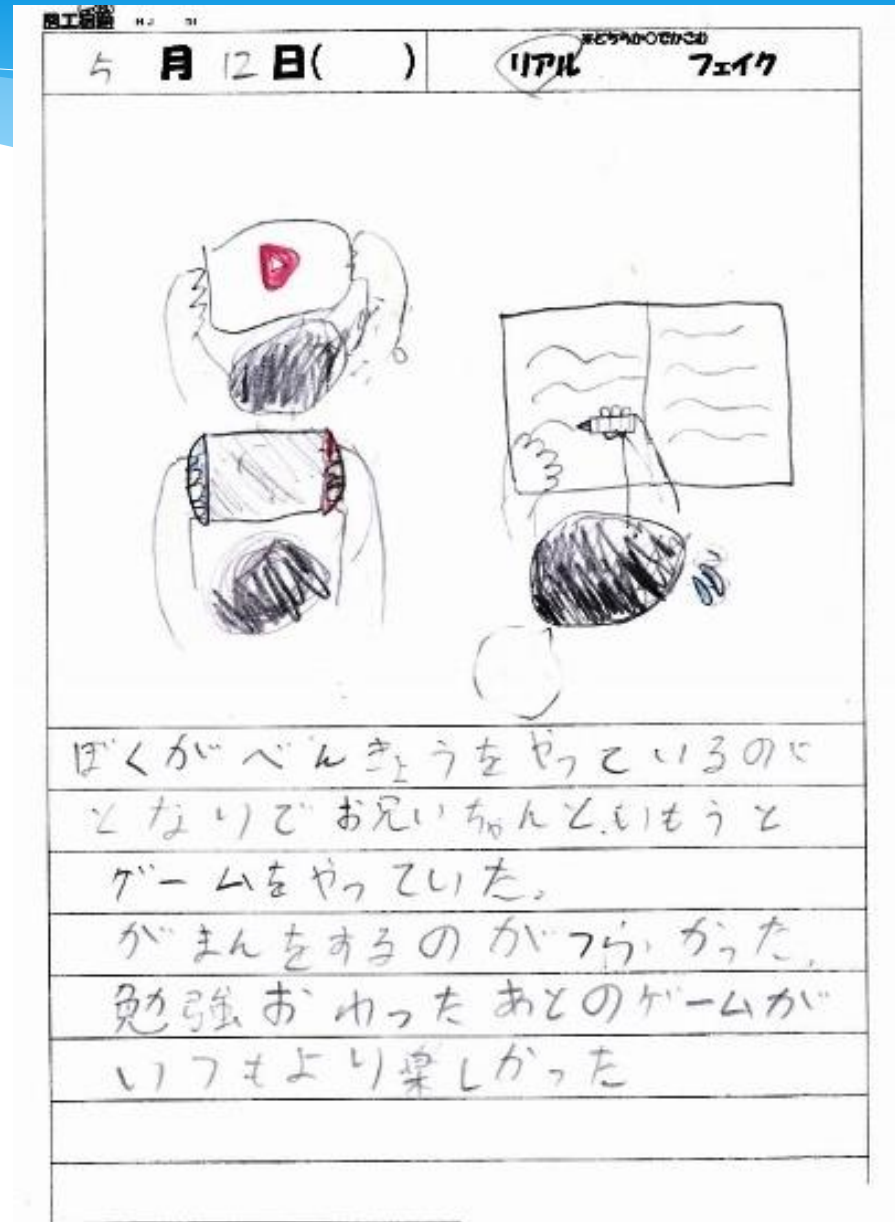 図工宿題
5月12日( )
※どちらか○でかこむ
リアル フェイク
ぼくがべんきょうをやっているのに
となりでお兄いちゃんといもうと
ゲームをやっていた。
がまんをするのがつらかった。
勉強おわったあとのゲームが
いつもより楽しかった